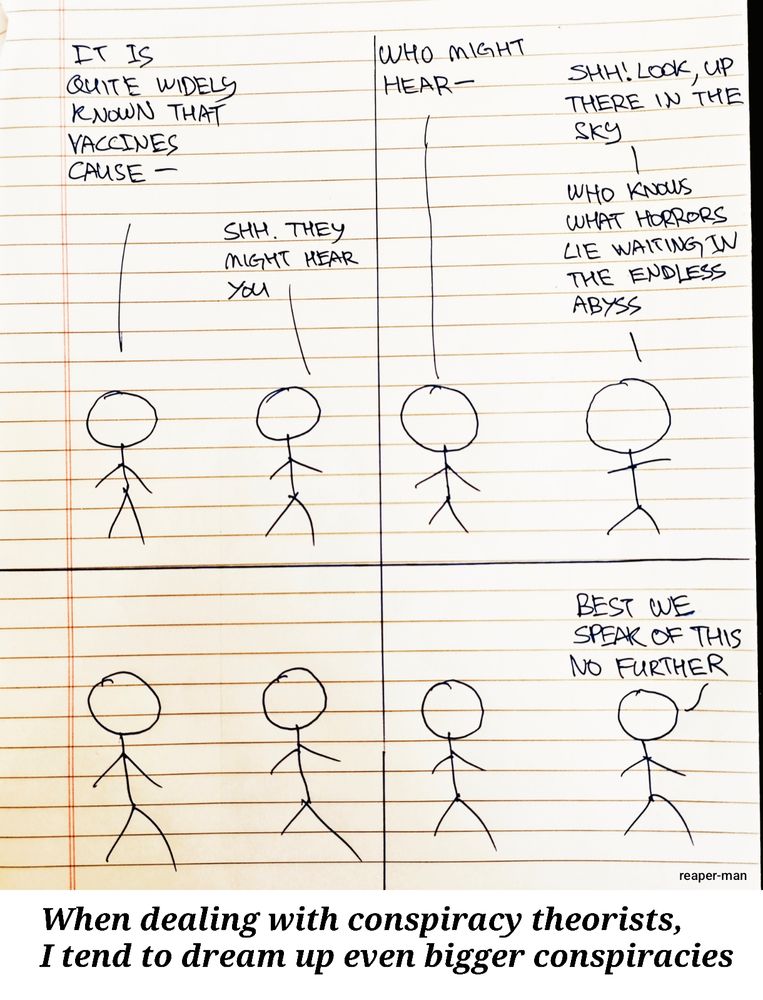 IT IS
QUITE WIDELY
KNOWN THAT
VACCINES
CAUSE —
SHH. THEY
MIGHT HEAR
YOU
WHO MIGHT
HEAR —
SHH! LOOK, UP
THERE IN THE
SKY
WHO KNOWS
WHAT HORRORS
LIE WAITING IN
THE ENDLESS
ABYSS
BEST WE
SPEAK OF THIS
NO FURTHER
reaper-man
When dealing with conspiracy theorists,
I tend to dream up even bigger conspiracies